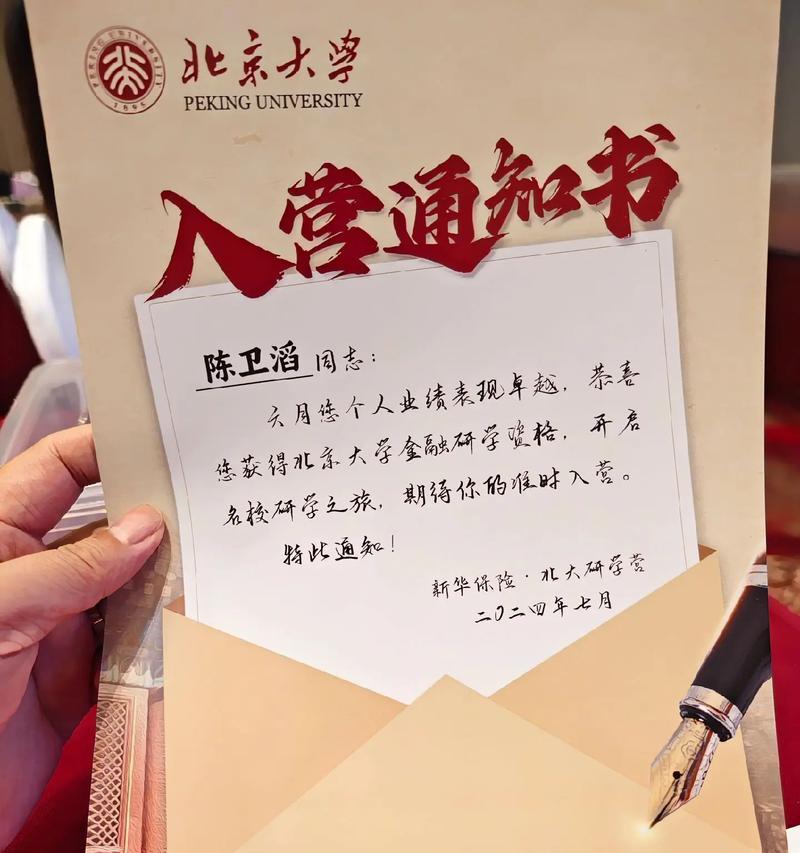 北京大学
PEKING UNIVERSITY
入营通知书
陈卫滔 同志：
六月您个人业绩表现卓越，恭喜
您获得北京大学金融研学资格，开启
名校研学之旅，期待你的准时入营。
特此通知！
新华保险·北大研学营
二〇二四年七月